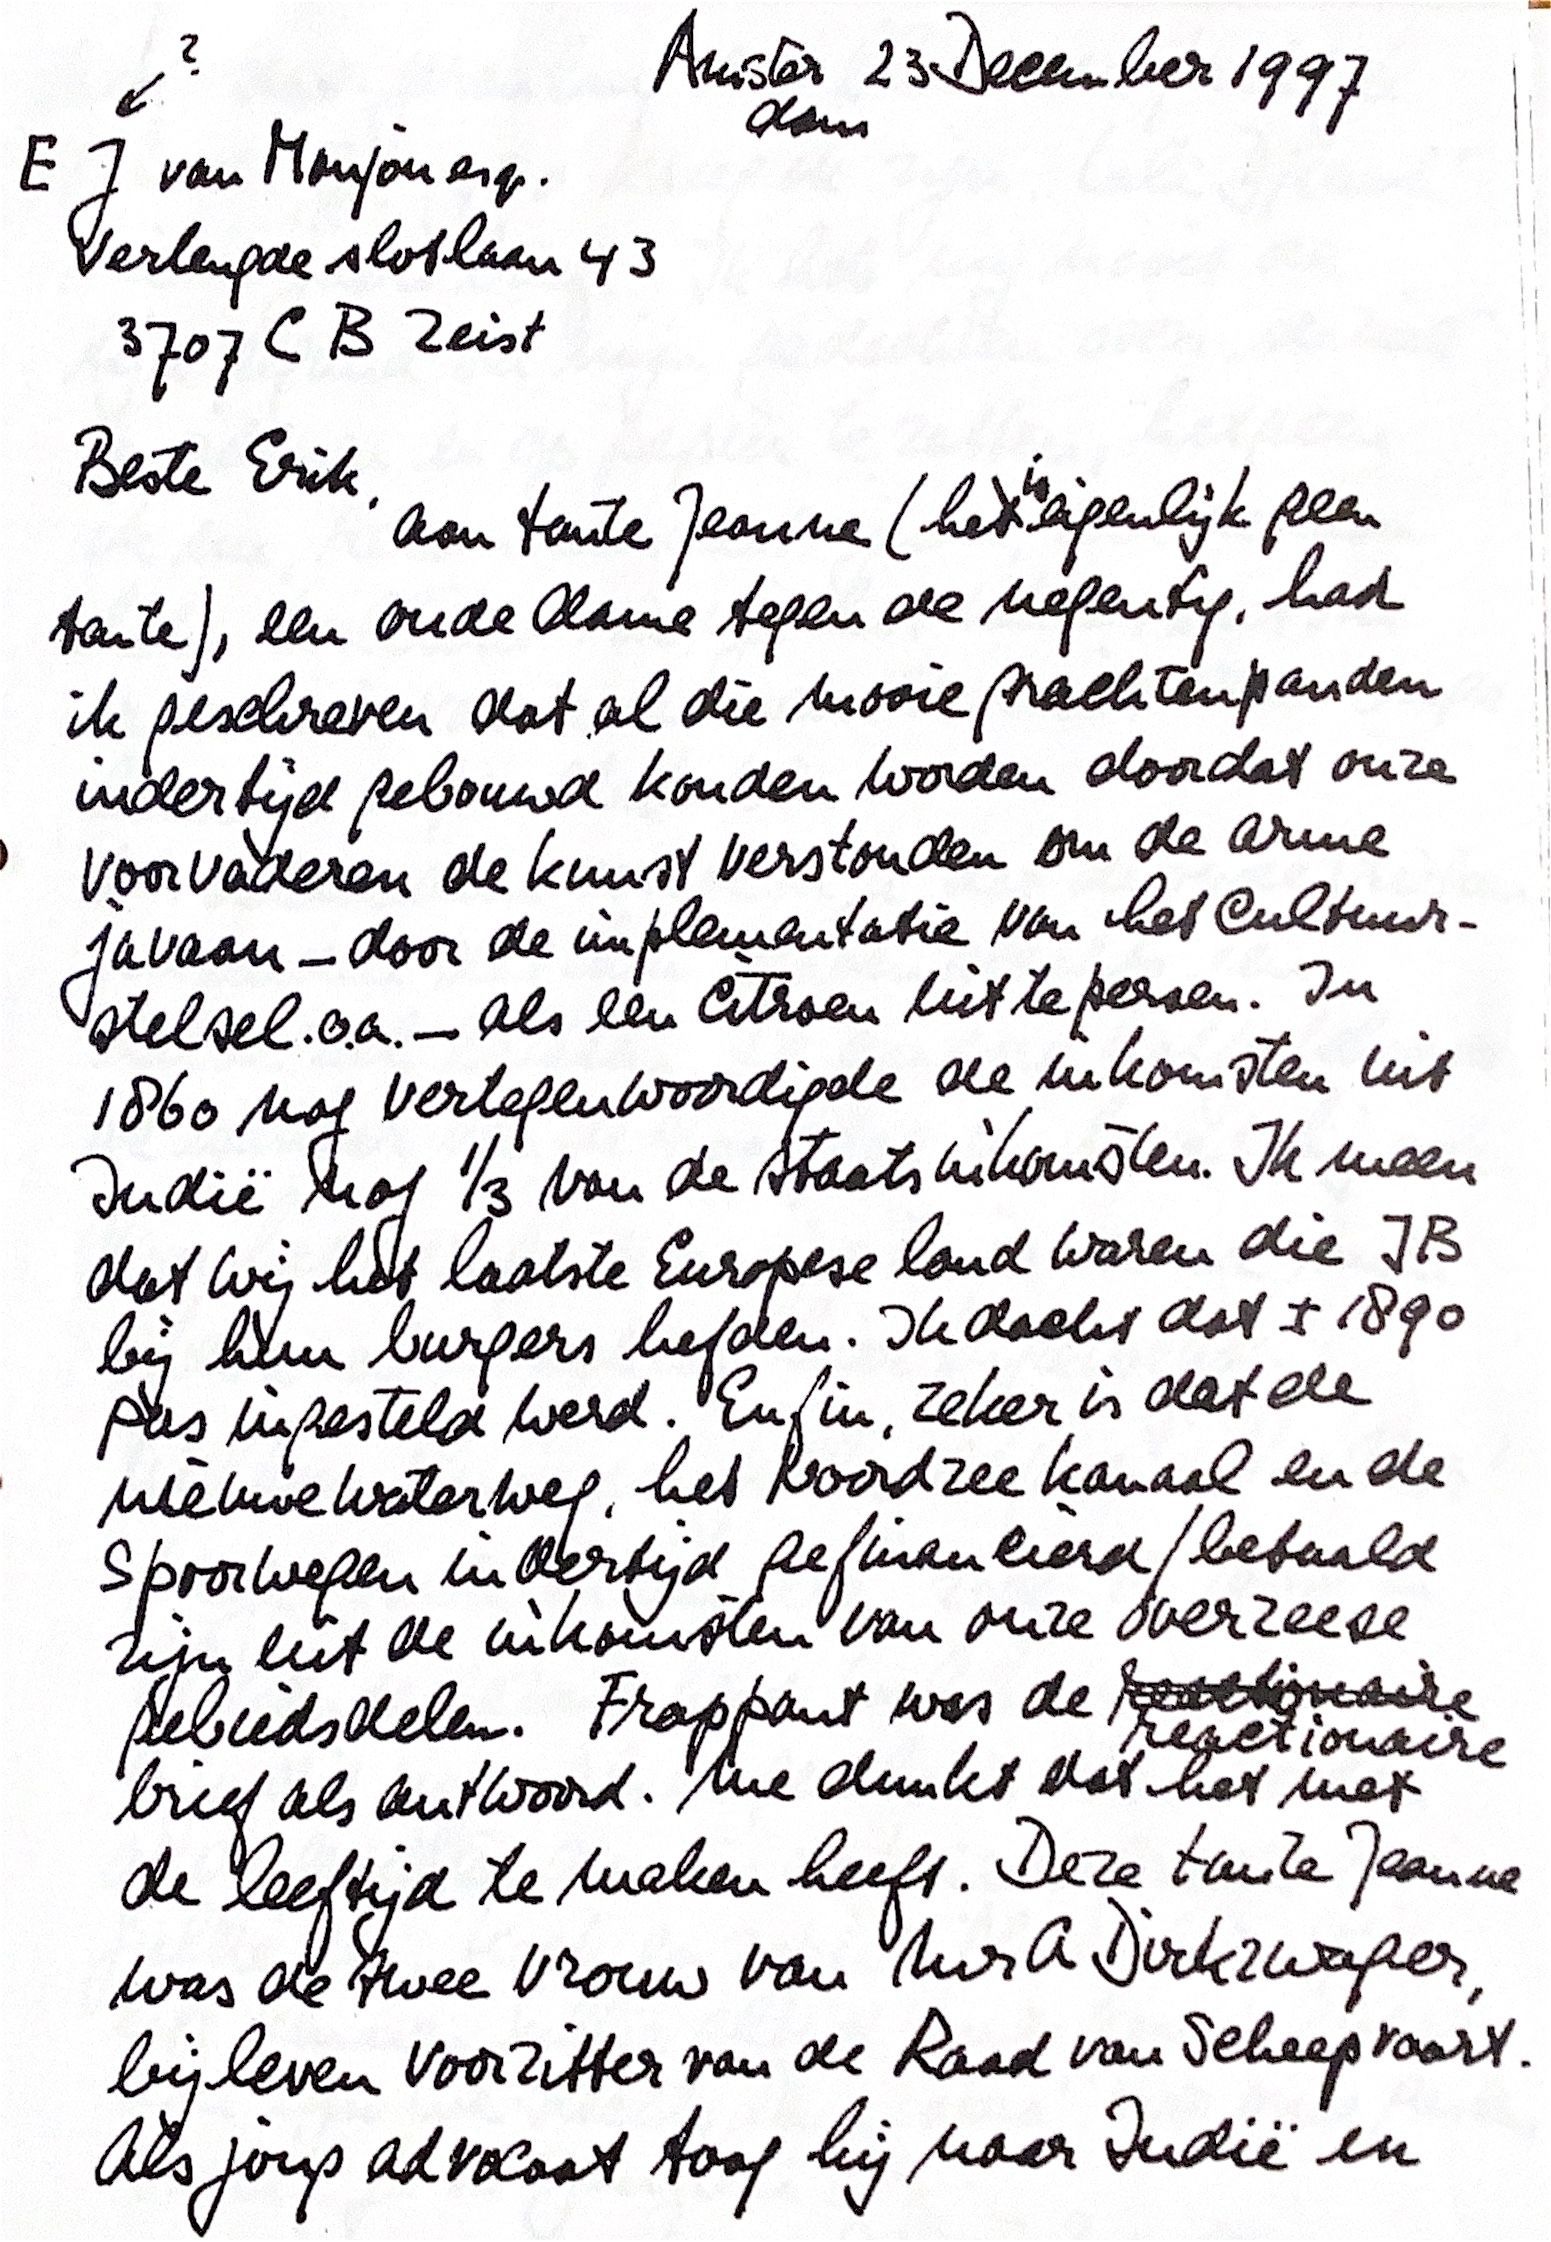 ?
Amster 23 December 1997
dam
E J van Monjou esq.
Verlengde slotlaan 43
3707 C B Zeist
Beste Erik,
aan tante Jeanne (het is eigenlijk geen
tante), een oude dame tegen de negentig, had
ik geschreven dat al die mooie grachtenpanden
indertijd gebouwd konden worden doordat onze
voorvaderen de kunst verstonden om de arme
javaan – door de implementatie van het Cultuur-
stelsel o.a. – als een Citroen uit te persen. In
1860 nog vertegenwoordigde de inkomsten uit
Indië nog 1/3 van de staatsinkomsten. Ik meen
dat wij het laatste Europese land waren die IB
bij hun burgers hefden. Ik dacht dat ± 1890
pas ingesteld werd. Enfin, zeker is dat de
nieuwe waterweg, het Noordzee kanaal en de
Spoorwegen indertijd gefinancierd/betaald
zijn uit de inkomsten van onze overzeese
gebiedsdelen. Frappant was de reactionaire
reactionaire
brief als antwoord. Me dunkt dat het met
de leeftijd te maken heeft. Deze tante Jeanne
was de twee vrouw van mr A Dirkzwager,
bij leven voorzitter van de Raad van Scheepvaart.
Als jong advocaat toog hij naar Indië en